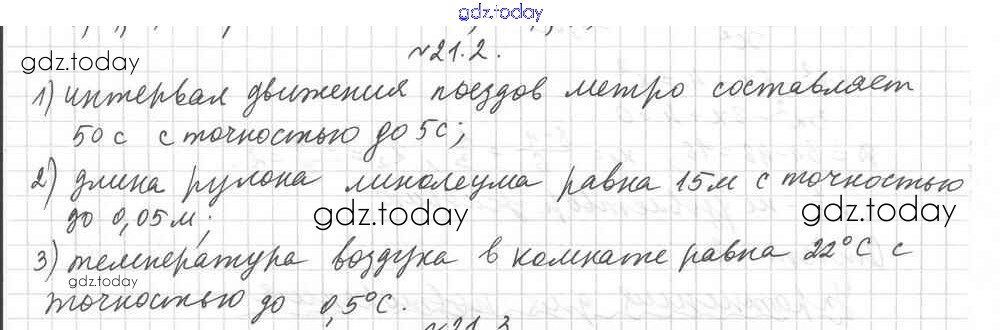 gdz.today
№21.2.
gdz.today
1) интервал движения поездов метро составляет
50 с с точностью до 5с;
2) длина рулона линолеума равна 15м с точностью
до 0,05 м;
gdz.today
gdz.today
3) температура воздуха в комнате равна 22°С с
gdz.today
точностью до 0,5°С.
№21.3